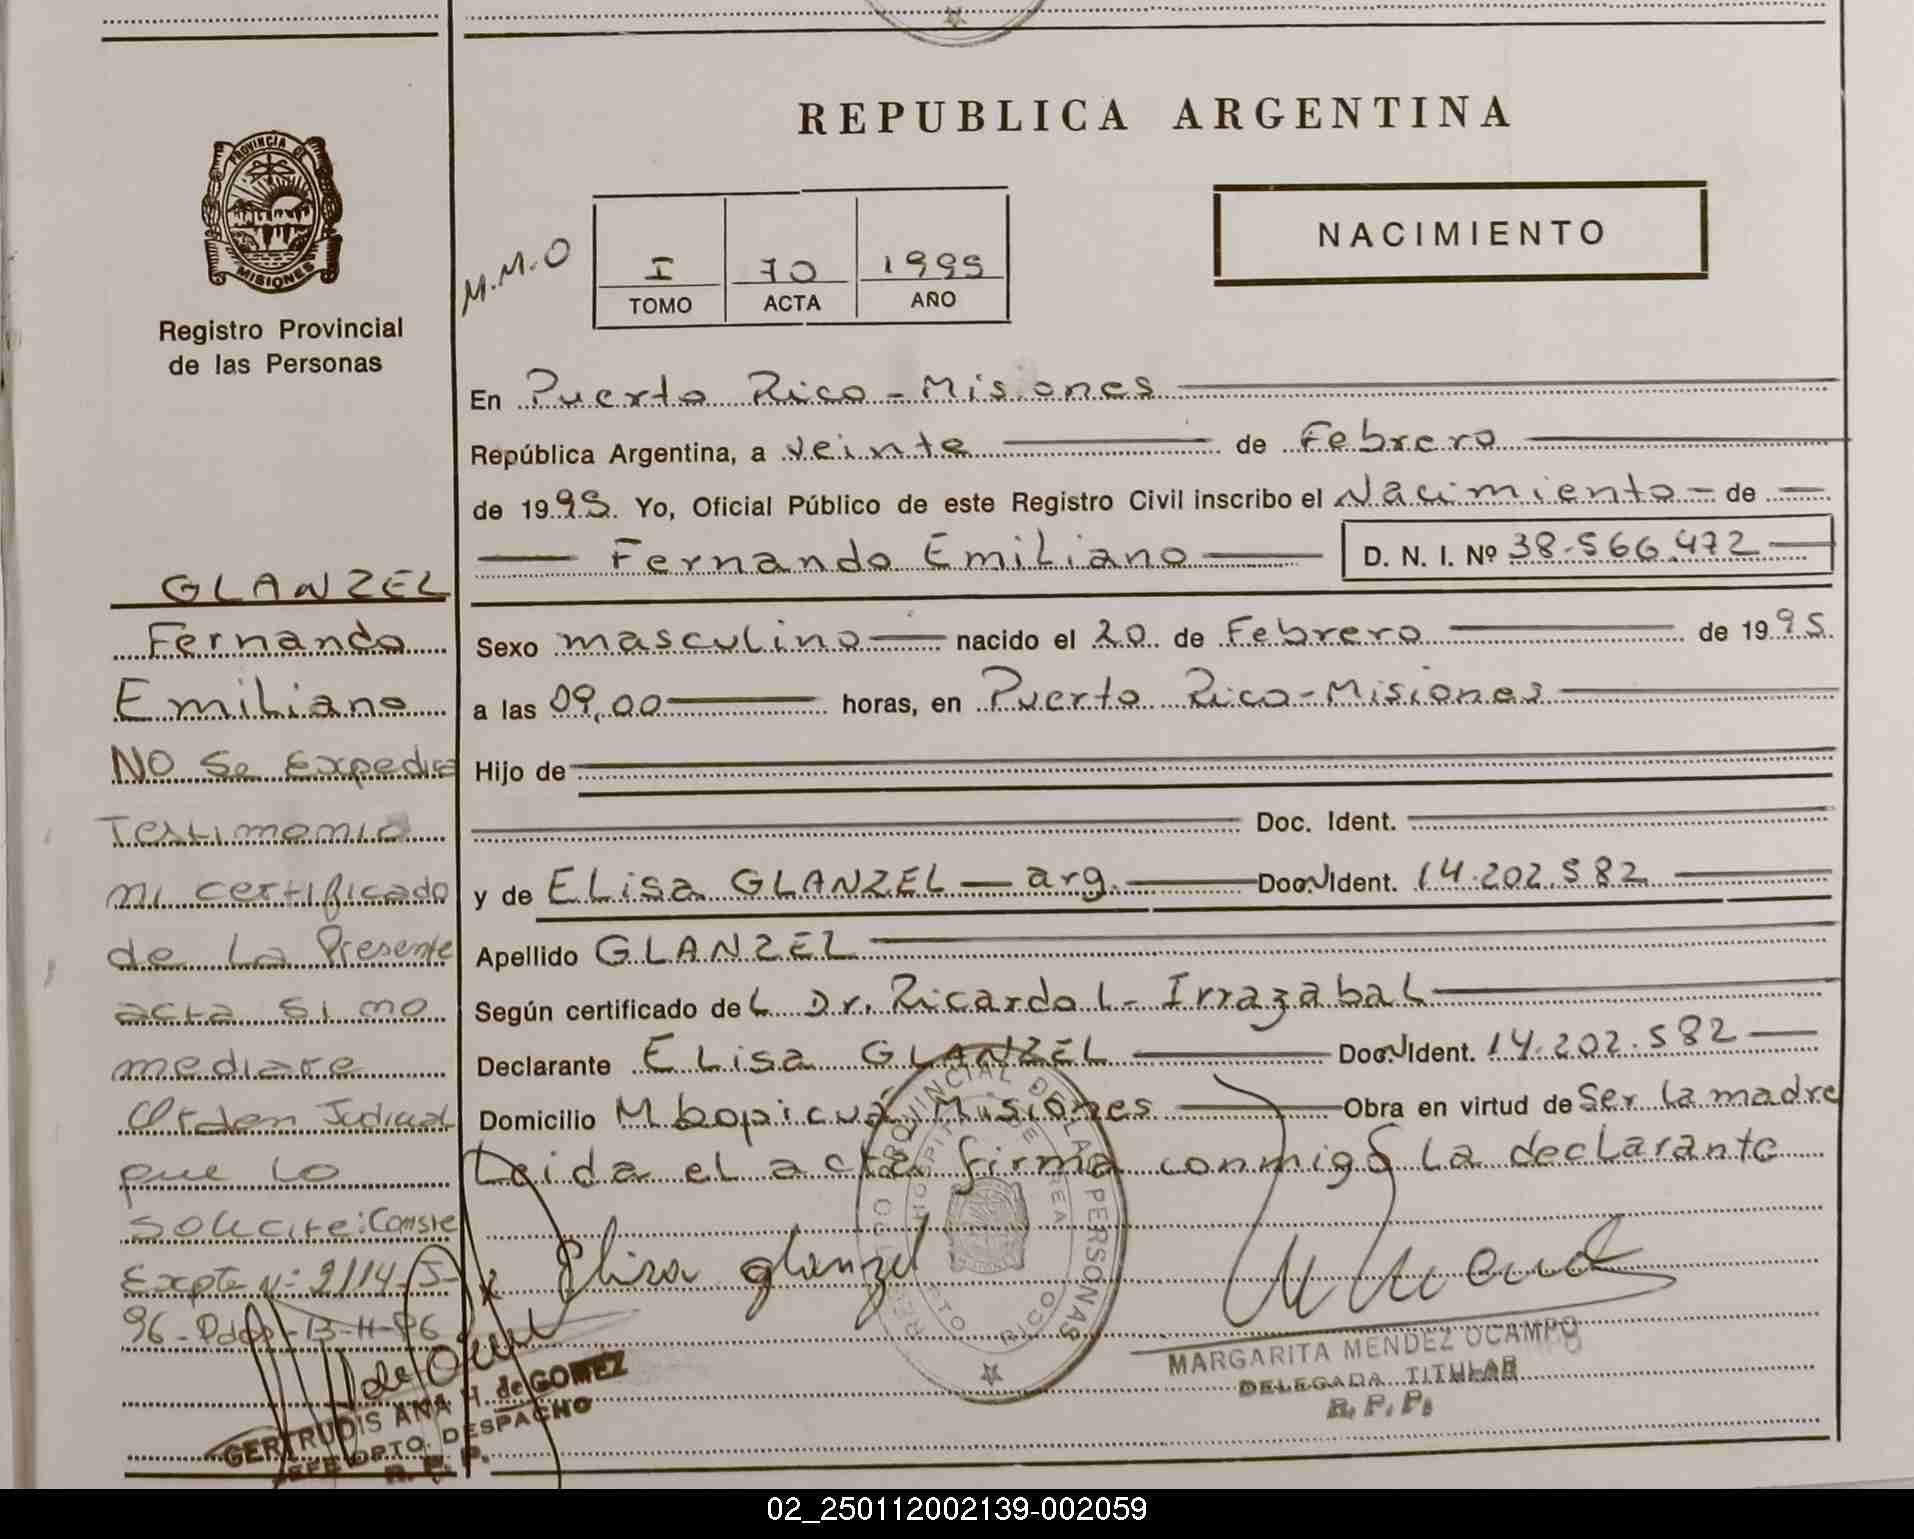 REPUBLICA ARGENTINA
PROVINCIA DE
MISIONES
Registro Provincial
de las Personas
M.M.O
I 70 1995
TOMO ACTA AÑO
NACIMIENTO
En Puerto Rico - Misiones
República Argentina, a veinte de Febrero
de 1995. Yo, Oficial Público de este Registro Civil inscribo el Nacimiento - de -
Fernando Emiliano D. N. I. Nº 38.566.472
Sexo masculino nacido el 20 de Febrero de 1995.
a las 09,00 horas, en Puerto Rico - Misiones
Hijo de
Doc. Ident.
y de ELisa GLANZEL - arg. Doc. N Ident. 14.202.582
Apellido GLANZEL
Según certificado deL Dr. Ricardo L. IrrazabaL
Declarante ELisa GLANZEL Doc. N Ident. 14.202.582
Domicilio Mbopicuá Misiones Obra en virtud de Ser La madre
Leida el acta firma conmigo La decLarante
x Elisa glanzel
MARGARITA MENDEZ OCAMPO
DELEGADA TITULAR
R. P. P.
GLANZEL
Fernando
Emiliano
NO Se Expedira
Testimonio
ni certificado
de La Presente
acta si no
mediare
Orden Judicial
que Lo
Solicite: Conste
Expte Nº 2114-J-
96 -
GERTRUDIS ANA H. de GOMEZ
JEFE DPTO. DESPACHO
R. P. P.
REGISTRO PROVINCIAL DE LAS PERSONAS
PUERTO RICO
02_250112002139-002059